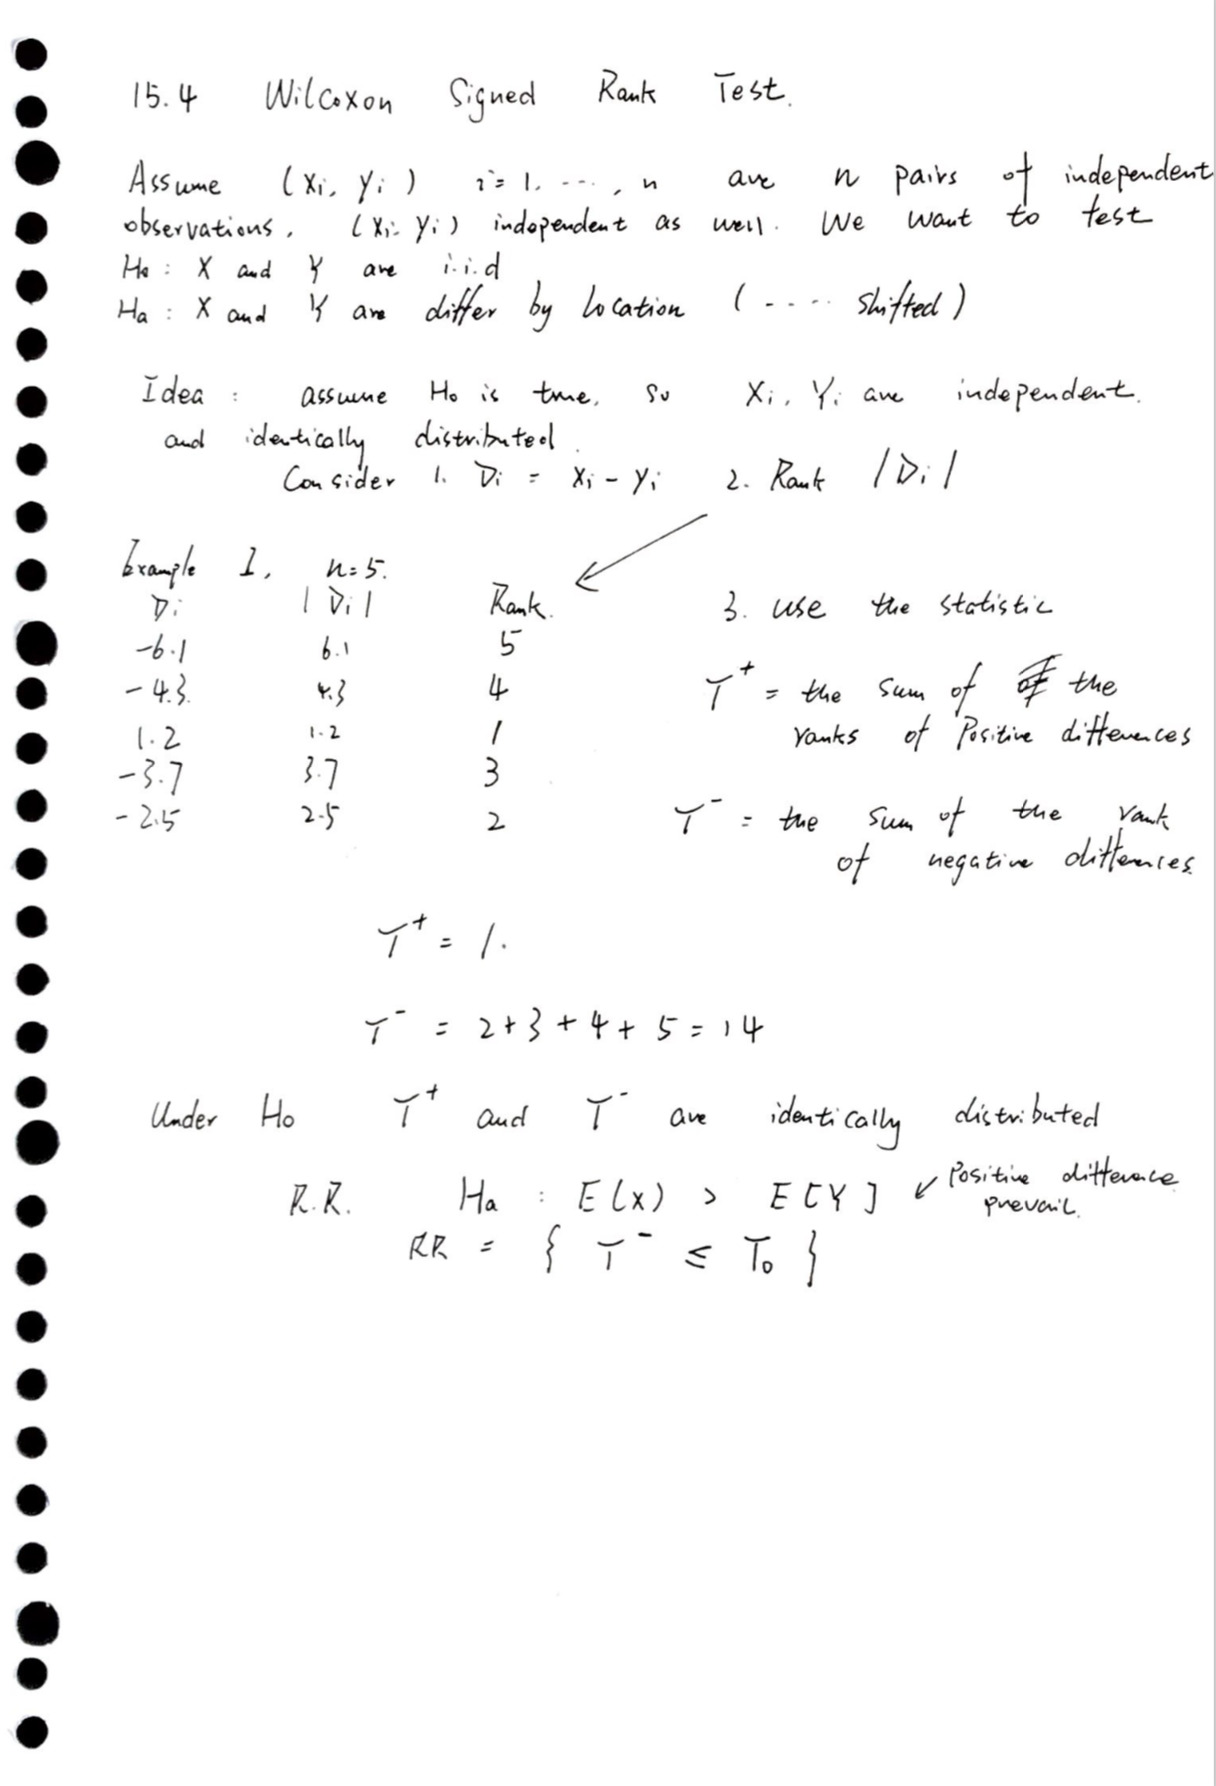 15.4 Wilcoxon Signed Rank Test.
Assume (Xi, Yi) i = 1, ..., n are n pairs of independent
observations, (Xi, Yi) independent as well. We want to test
Ho : X and Y are i.i.d
Ha : X and Y are differ by location ( .... shifted )
Idea : assume Ho is true, so Xi, Yi are independent.
and identically distributed.
Consider 1. Di = Xi - Yi 2. Rank |Di|
Example 1. n=5.
Di |Di| Rank.
-6.1 6.1 5
-4.3. 4.3 4
1.2 1.2 1
-3.7 3.7 3
-2.5 2.5 2
3. use the statistic
T⁺ = the sum of the
ranks of Positive differences
T⁻ = the sum of the rank
of negative differences.
T⁺ = 1.
T⁻ = 2+3+4+5=14
Under Ho T⁺ and T⁻ are identically distributed
R.R. Ha : E(X) > E[Y] ↙ Positive difference
prevail.
RR = { T⁻ ≤ To }